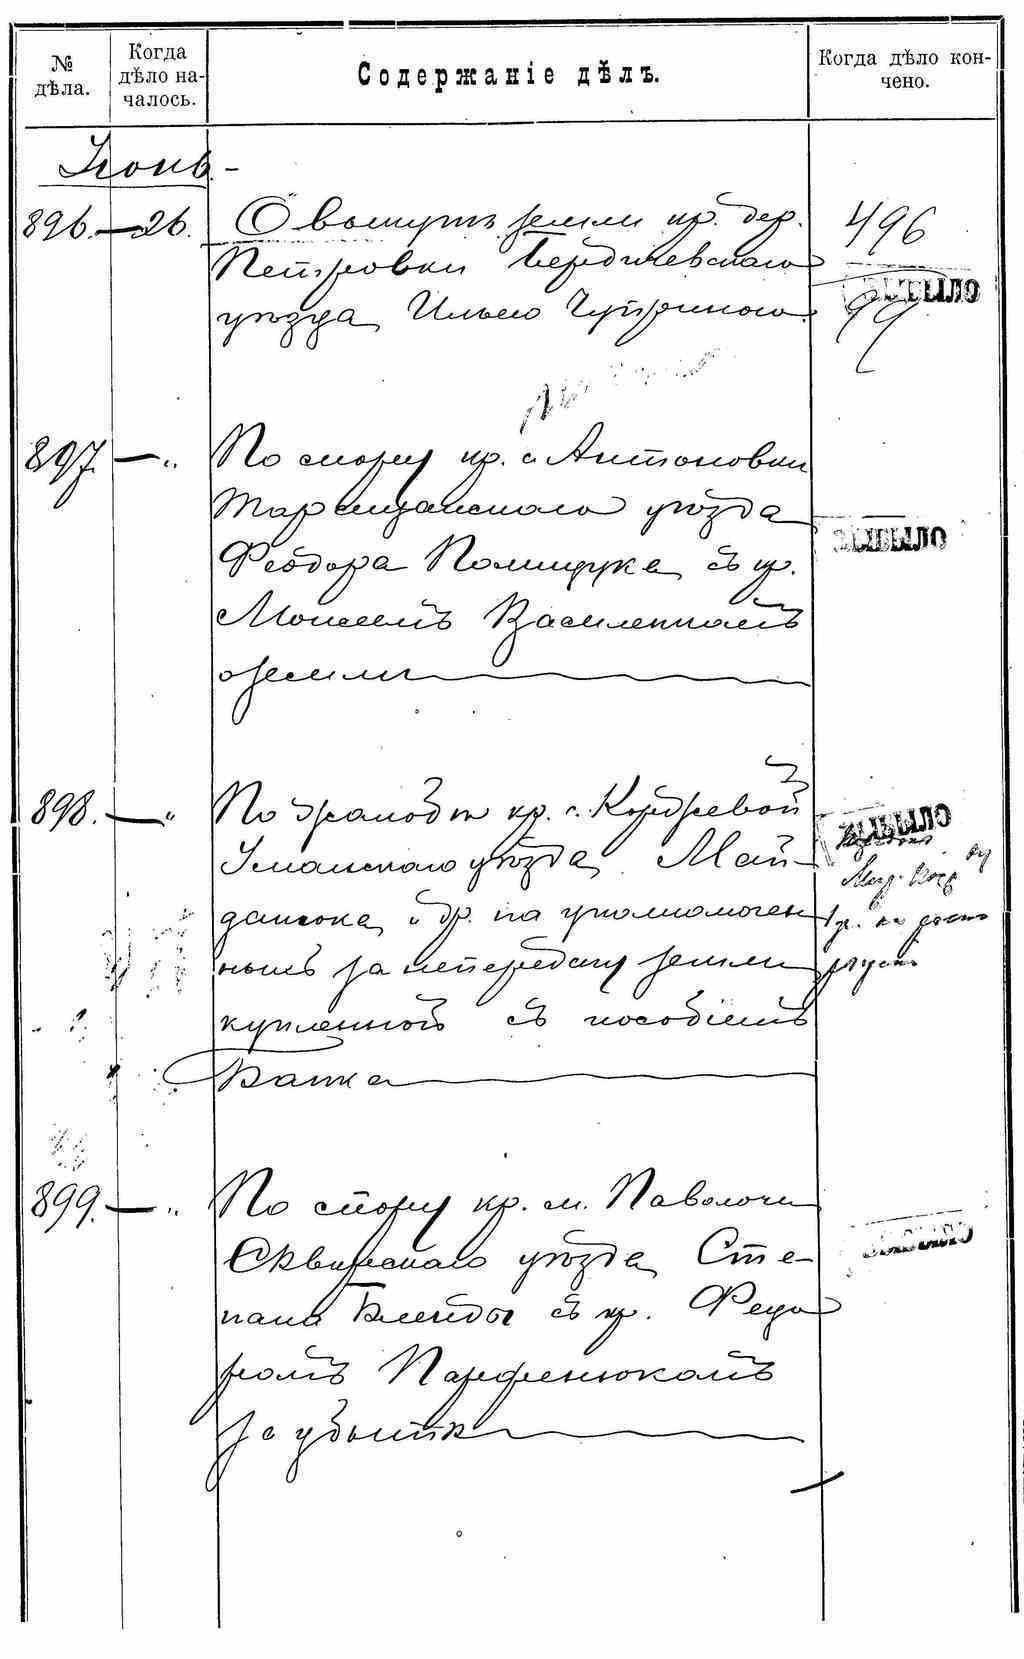 № дѣла.
Когда дѣло на-
чалось.
Содержаніе дѣлъ.
Когда дѣло кон-
чено.
Іюнь.-
896. — 26. О выкупѣ земли кр. дер. 496
Петровки Бердичевскаго
ВЫБЫЛО
уѣзда Ильею Чуприною. 99
897. — „ По спору кр. с. Антоновки
Таращанскаго уѣзда
ВЫБЫЛО
Феодора Полищука съ кр.
Моисеемъ Василенкомъ
о земли
898. — „ По жалобѣ кр. с. Коржевой
ВЫБЫЛО
Уманскаго уѣзда Май-
данюка и др. на уполномочен
нымъ за непередачу земли
купленной съ пособіемъ
Банка
899. — „ По спору кр. м. Паволочи
ВЫБЫЛО
Сквирскаго уѣзда Сте-
пана Бленды съ кр. Федо
ромъ Парфенюкомъ
за убытки